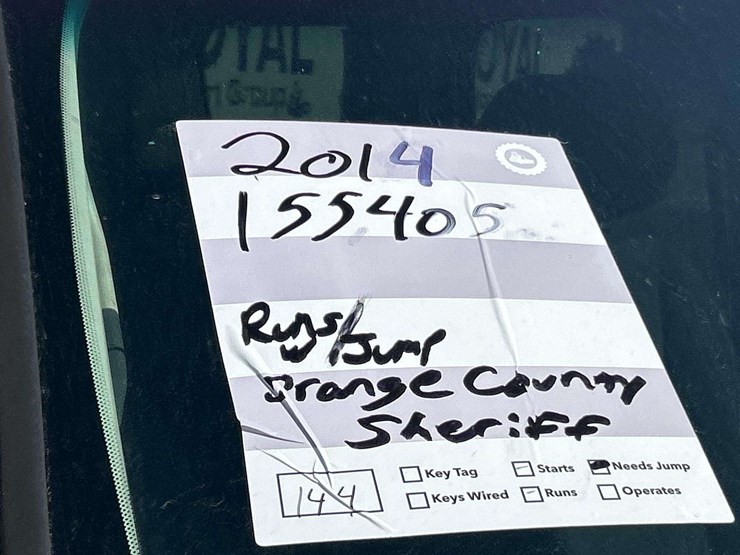 2014
155405
Runs/
w Jump
Orange County
Sheriff
144
Key Tag Starts Needs Jump
Keys Wired Runs Operates